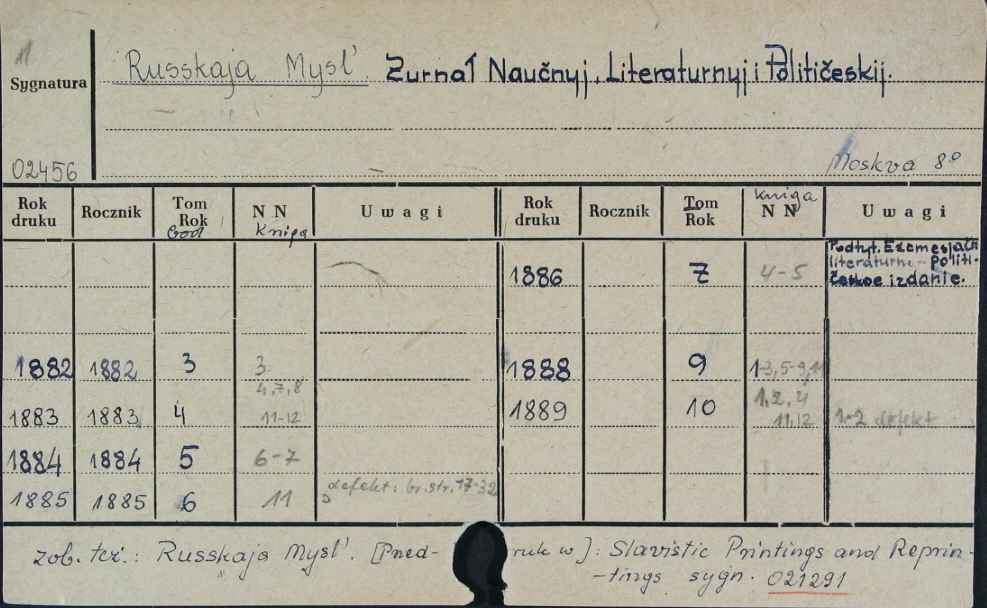 Russkaja Mysl'. Žurnał Naučnyj, Literaturnyj i Političeskij.
Sygnatura
02456
Moskva 8º
Rok druku Rocznik Tom Rok N N U w a g i Rok druku Rocznik Tom Rok kniga N N U w a g i
God Kniga
1886 7 4-5 Podtyt. Ežemesjačn.
literaturno-politi-
českoe izdanie.
1882 1882 3 3 1888 9 1-3, 5-9, 11
1883 1883 4 4, 7, 8 1889 10 1, 2, 4 1-2 defekt
11-12 11, 12
1884 1884 5 6-7
1885 1885 6 11 defekt: br. str. 17-32
zob. też.: Russkaja Mysl'. [Pned- ruk w]: Slavistic Printings and Reprin-
-tings sygn. 021291